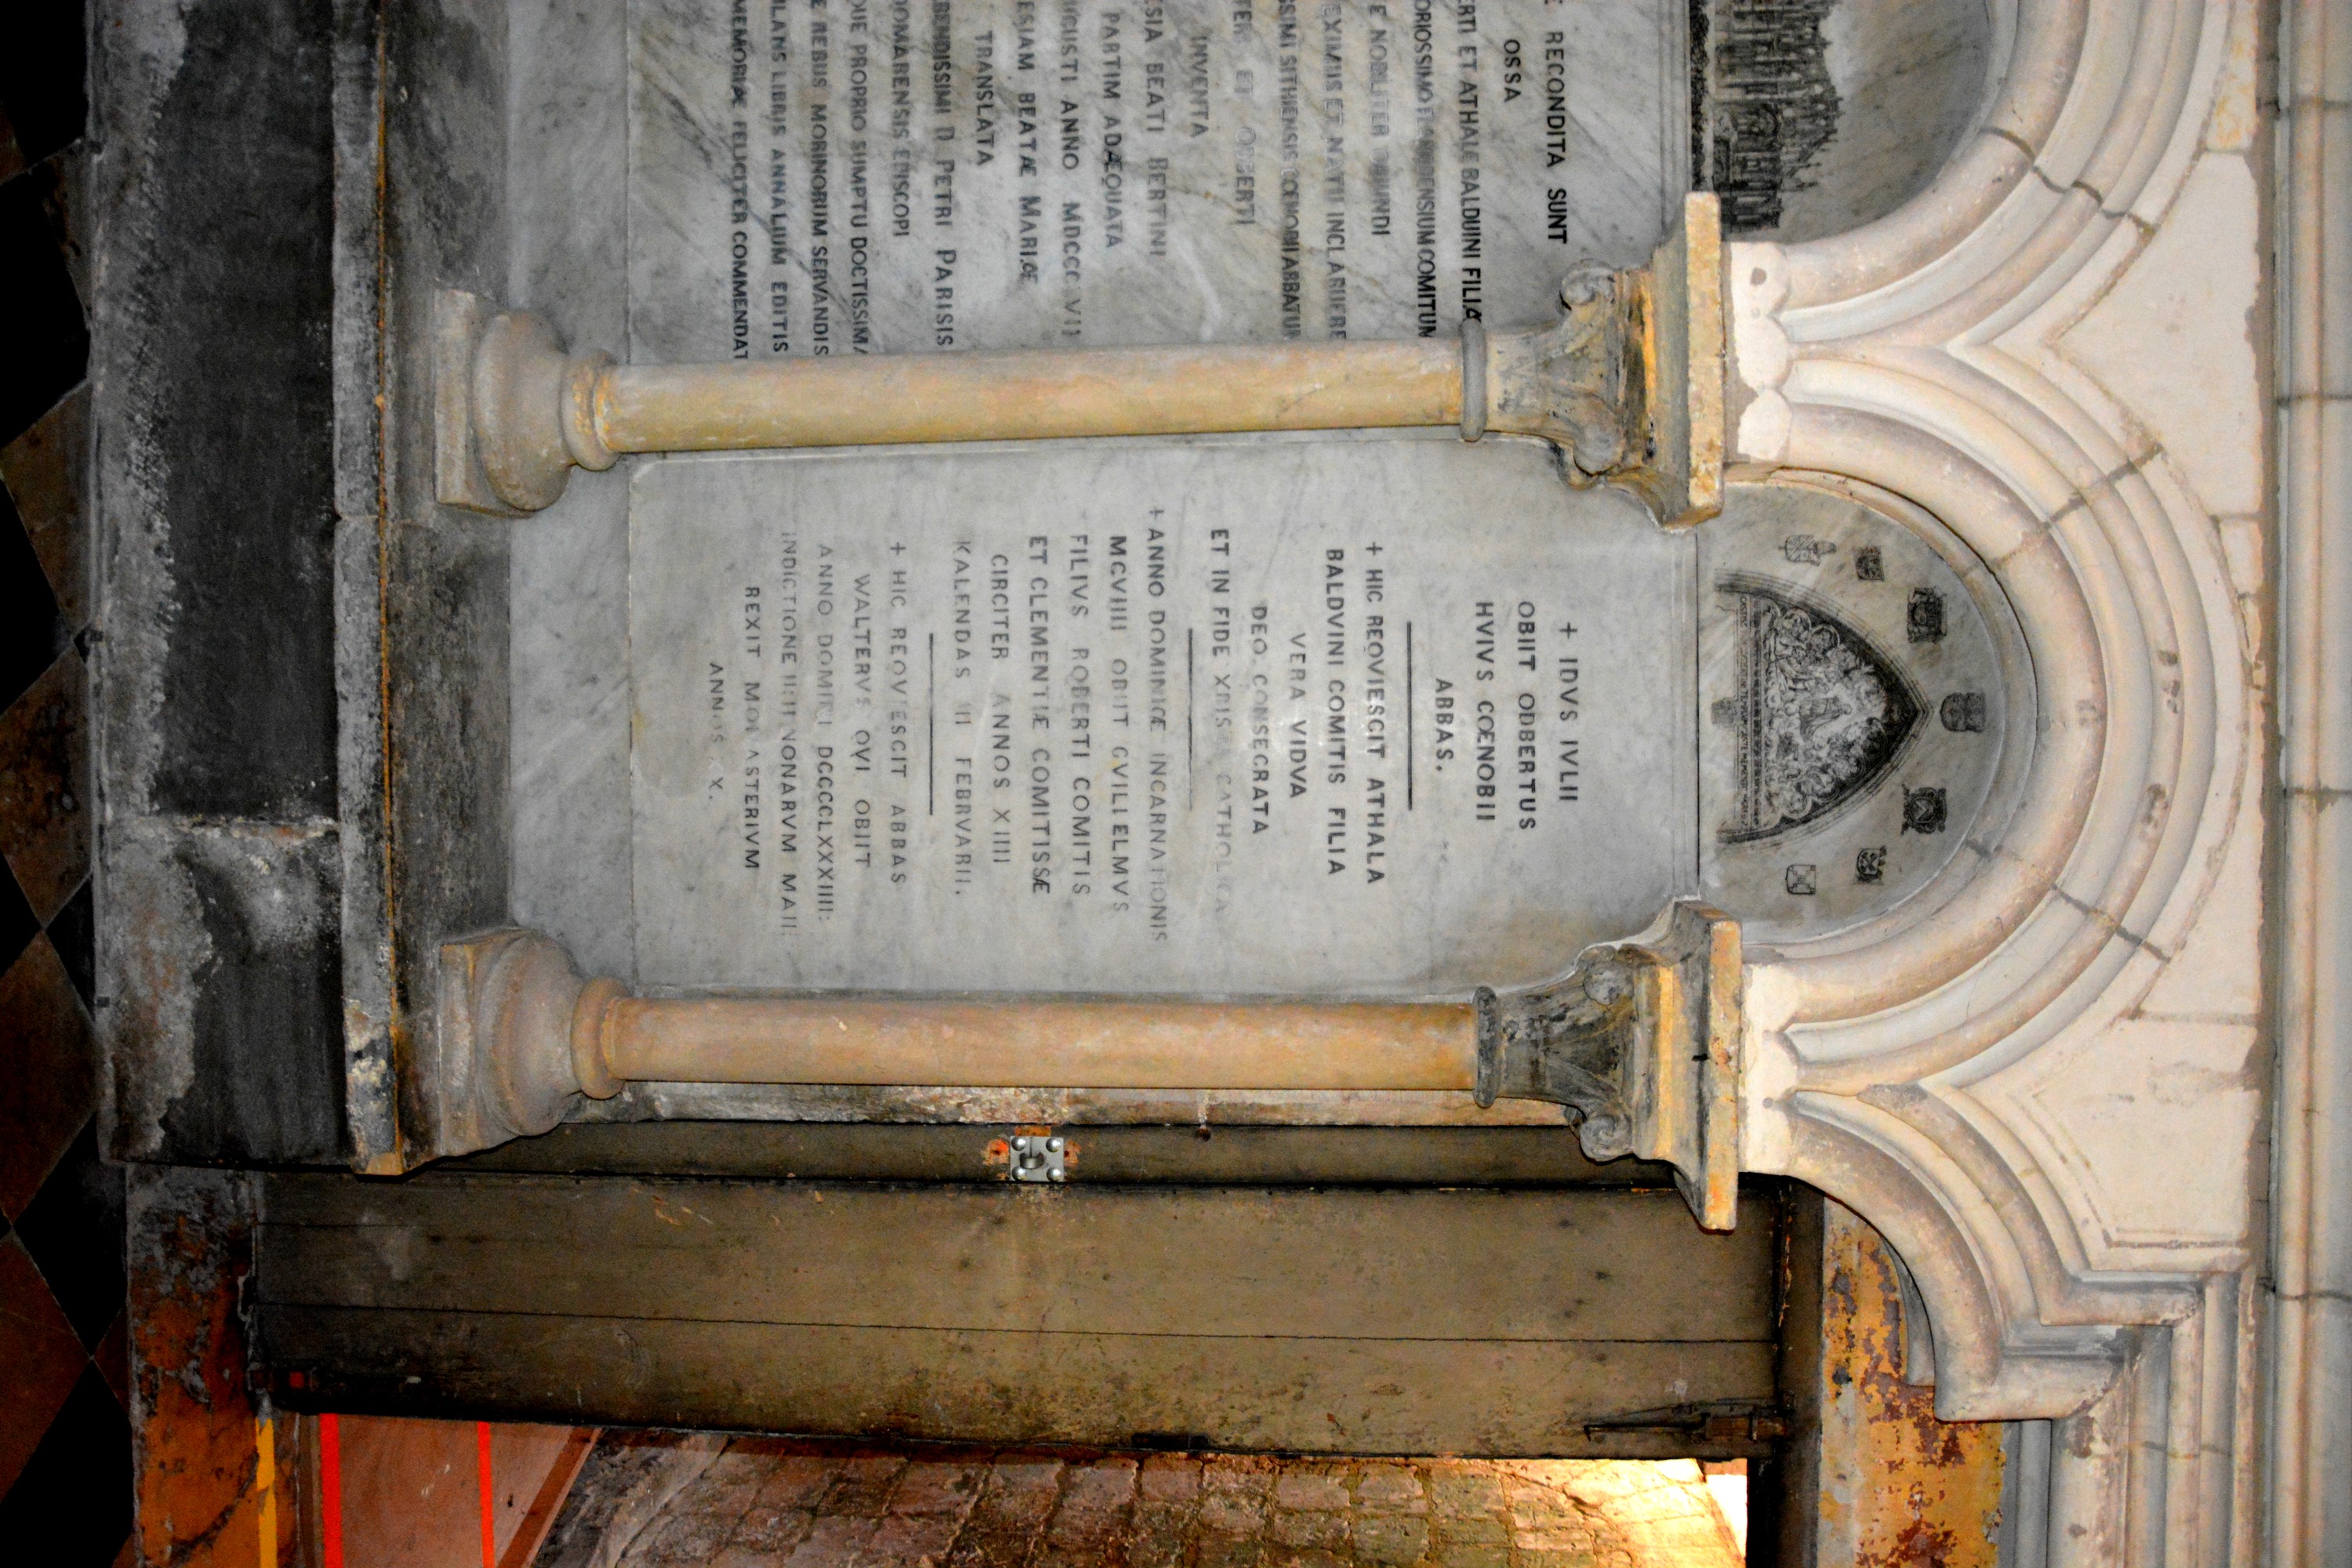 E RECONDITA SUNT
OSSA
ERTI ET ATHALÆ BALDUINI FILIÆ
ORIOSSIMO FLANDRENSIUM COMITUM
E NOBILITER ORIUNDI
EXIMIIS ET NATU INCLARUERE
SSIMI SITHIENSIS CŒNOBII ABBATUM
TERI ET ODBERTI
INVENTA
ESIA BEATI BERTINI
PARTIM ADÆQUATA
UGUSTI ANNO MDCCC VII
ESIAM BEATÆ MARIÆ
TRANSLATA
RENDISSIMI D PETRI PARISIS
DOMARENSIS EPISCOPI
QUE PROPRIO SUMPTU DOCTISSIMA
E REBUS MORINORUM SERVANDIS
ULANS LIBRIS ANNALIUM EDITIS
MEMORIÆ FELICITER COMMENDAT
+ IDVS IVLII
OBIIT ODBERTUS
HVIVS CŒNOBII
ABBAS.
+ HIC REQVIESCIT ATHALA
BALDVINI COMITIS FILIA
VERA VIDVA
DEO CONSECRATA
ET IN FIDE XRISTI CATHOLICA
+ ANNO DOMINICÆ INCARNATIONIS
MCVIIII OBIIT GVILIELMVS
FILIVS ROBERTI COMITIS
ET CLEMENTIÆ COMITISSÆ
CIRCITER ANNOS XIIII
KALENDAS III FEBRVARII.
+ HIC REQVIESCIT ABBAS
WALTERVS QVI OBIIT
ANNO DOMINI DCCCCLXXXIIII:
INDICTIONE NONARVM MAII:
REXIT MONASTERIVM
ANNOS X.